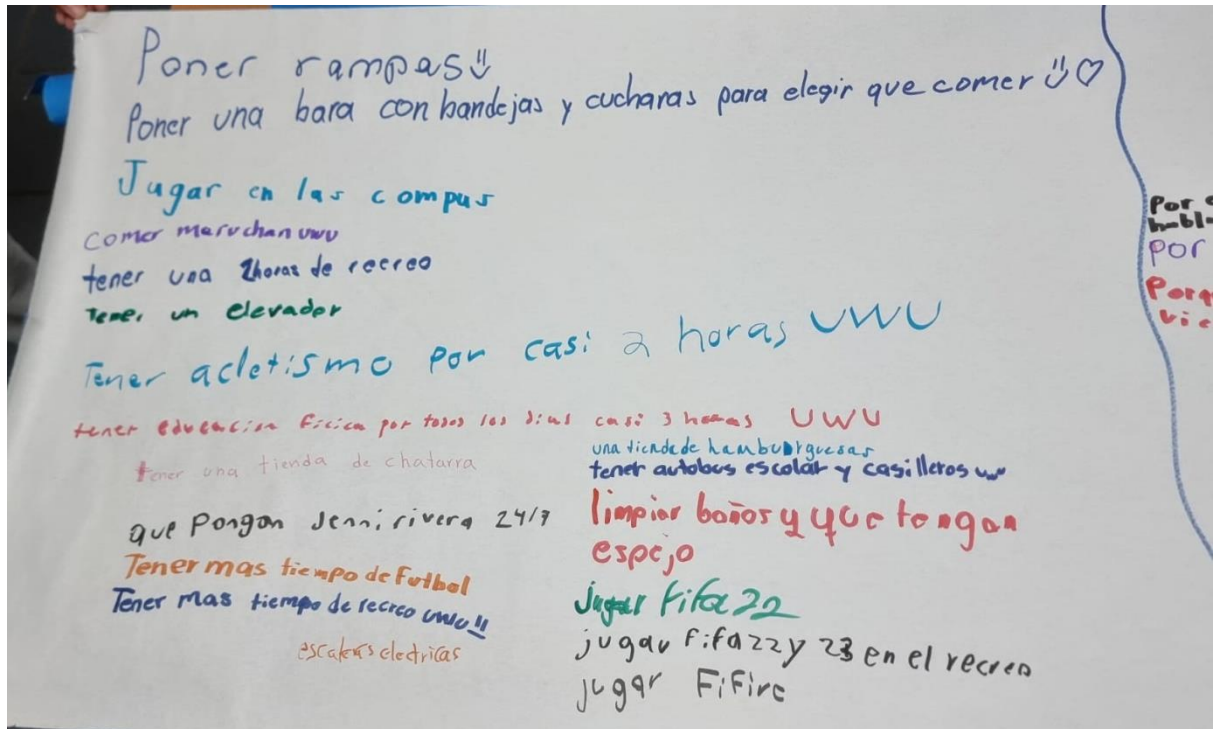 Poner rampas
Poner una bara con bandejas y cucharas para elegir que comer
Jugar en las compus
comer maruchan uwu
tener una 2horas de recreo
Tener un elevador
Tener acletismo por casi 2 horas UWU
tener educacion ficica por todos los dias casi 3 horas UWU
tener una tienda de chatarra
que Pongan Jenni rivera 24/7
Tener mas tiempo de Futbol
Tener mas tiempo de recreo uwu
escaleras electricas
una tienda de hamburguesas
tener autobus escolar y casilleros uw
limpiar baños y que tengan
espejo
jugar Fifa 22
jugar Fifa22 y 23 en el recreo
jugar FiFire
Por
por
Porq